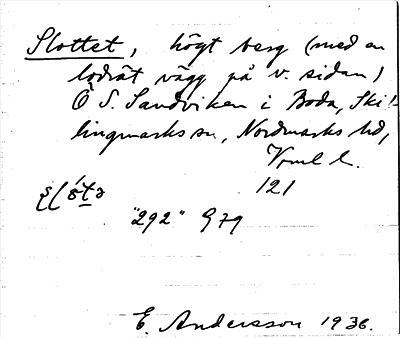 Slottet, högt berg (med en
lodrät vägg på v. sidan)
Ö S. Sandviken i Boda, Skil-
lingmarks sn, Nordmarks hd,
Vrml l.
121
"292" G79
E. Andersson 1936.